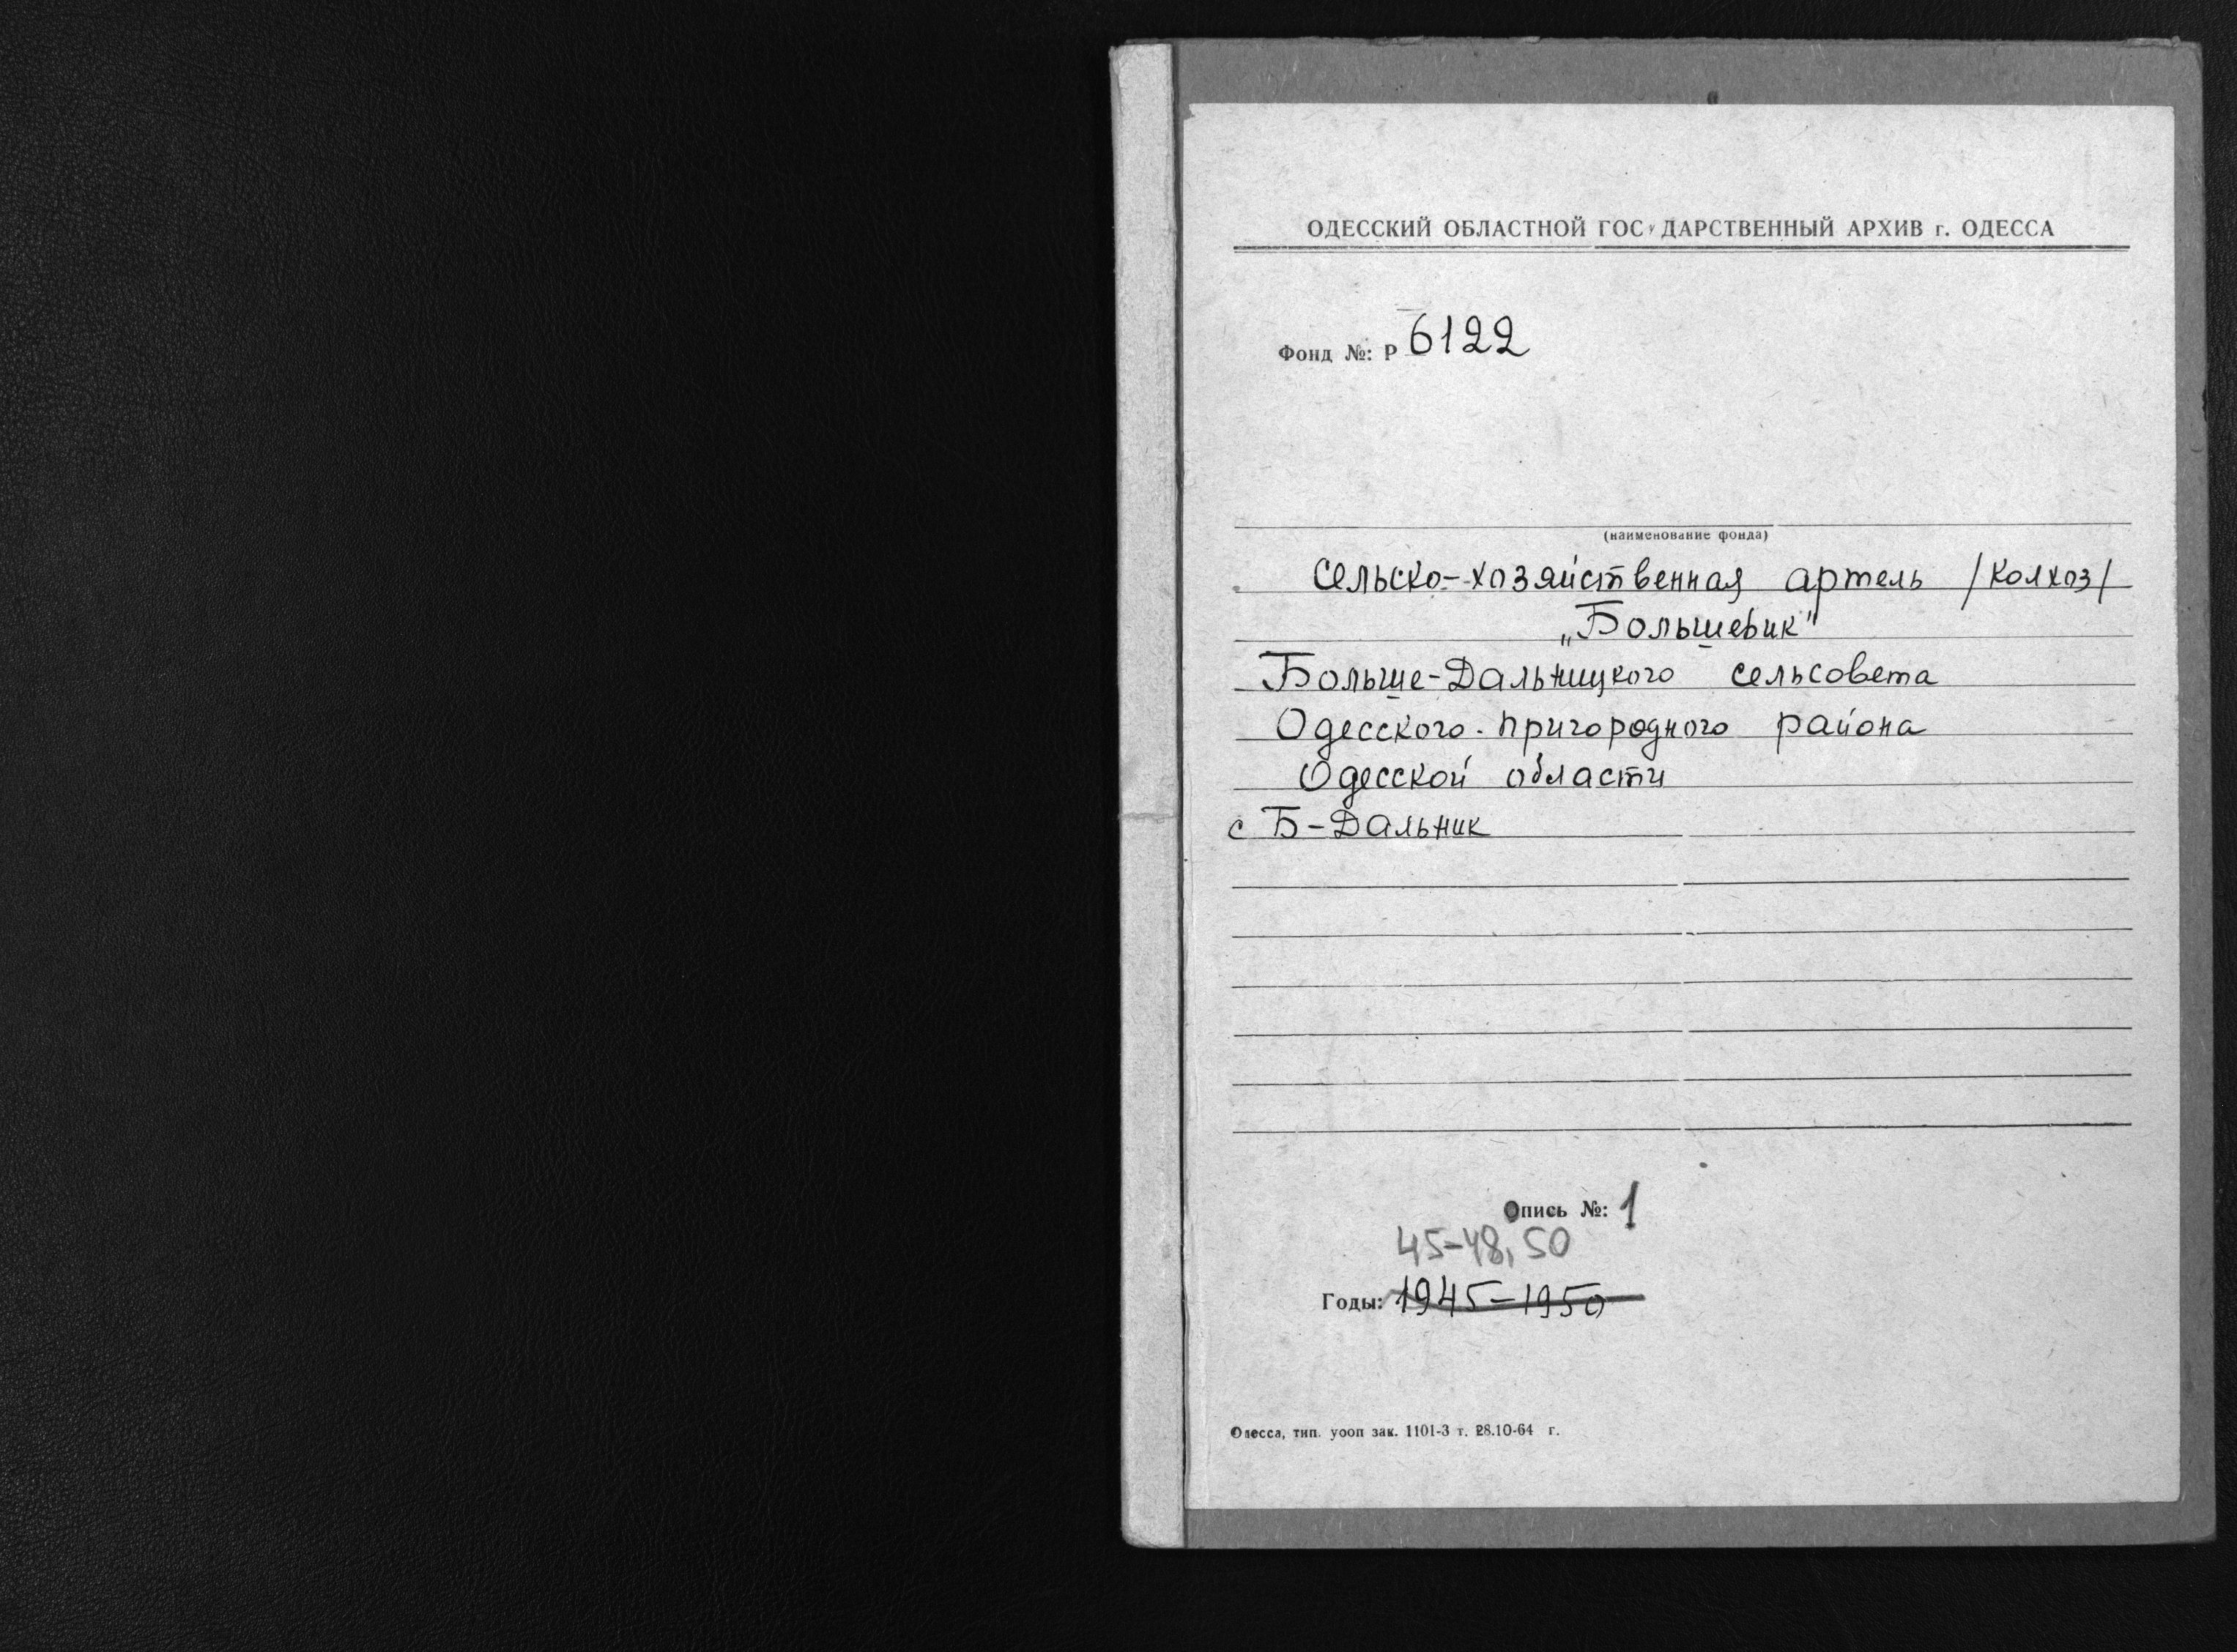 ОДЕССКИЙ ОБЛАСТНОЙ ГОСУДАРСТВЕННЫЙ АРХИВ г. ОДЕССА
Фонд №: Р 6122
(наименование фонда)
Сельско-хозяйственная артель /колхоз/
„Большевик"
Больше-Дальницкого сельсовета
Одесского-пригородного района
Одесской области
с Б-Дальник
Опись №: 1
45-48, 50
Годы: 1945-1950
Одесса, тип. уооп зак. 1101-3 т. 28.10-64 г.